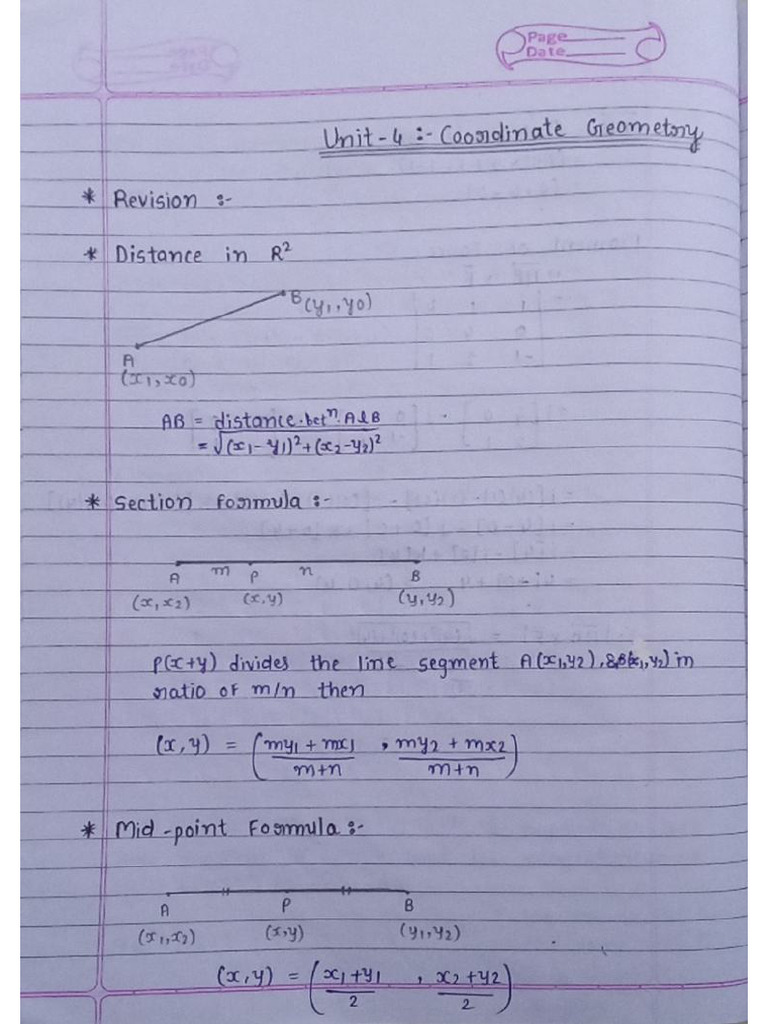 Page
Date
Unit-4 :- Coordinate Geometory
* Revision :-
* Distance in R²
B(y₁,y0)
A
(x₁,x0)
AB = distance.betⁿ.A&B
= √(x₁-y₁)²+(x₂-y₂)²
* Section formula :-
A m P n B
(x,x₂) (x,y) (y,y₂)
P(x+y) divides the line segment A(x₁,y₂),&B(x₁,y₂) in
ratio of m/n then
(x,y) = (my₁+mx₁/m+n , my₂+mx₂/m+n)
* Mid-point Formula :-
A P B
(x₁,x₂) (x,y) (y₁,y₂)
(x,y) = (x₁+y₁/2 , x₂+y₂/2)